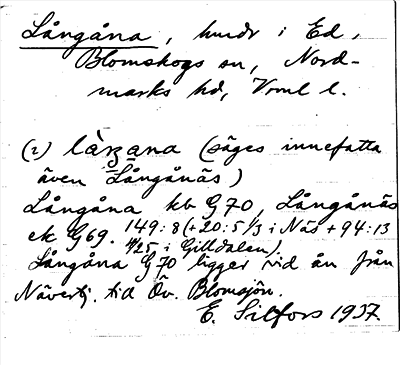 Långåna, hmdr i Ed,
Blomskogs sn, Nord-
marks hd, Vrml l.
(2) låŋana (säges innefatta
även Långånäs)
Långåna kb G70, Långånäs
ek G69. 149:8 (+20:5 1/3 i Näs + 94:13
i Gilldalen).
Långåna G70 ligger vid ån från
Nävertj. till Öv. Blomsjön.
E. Silfors 1937.